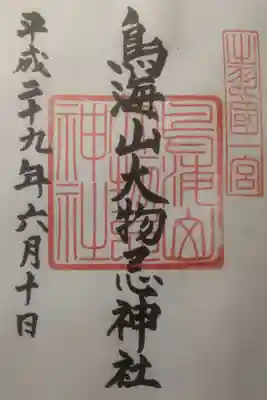 出羽國一宮
鳥海山大物忌神社
平成二十九年六月十日